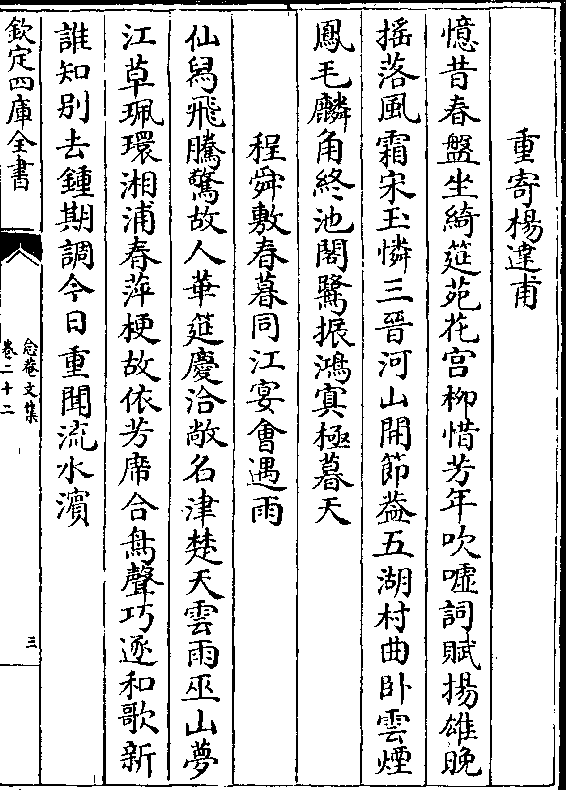 重寄楊達甫
憶昔春盤坐綺筵苑花宫柳惜芳年吹噓詞賦揚雄晚
摇落風霜宋玉憐三晉河山開節益五湖村曲卧雲煙
鳳毛麟角終池閣鷺振鴻寘極暮天
程舜敷春暮同江宴會遇雨
仙舄飛騰驚故人華筵慶洽敞名津楚天雲雨巫山夢
江草珮環湘浦春萍梗故依芳席合鳥聲巧逐和歌新
誰知别去鍾期調今日重聞流水濵
欽定四庫全書
念菴文集
卷二十二
三